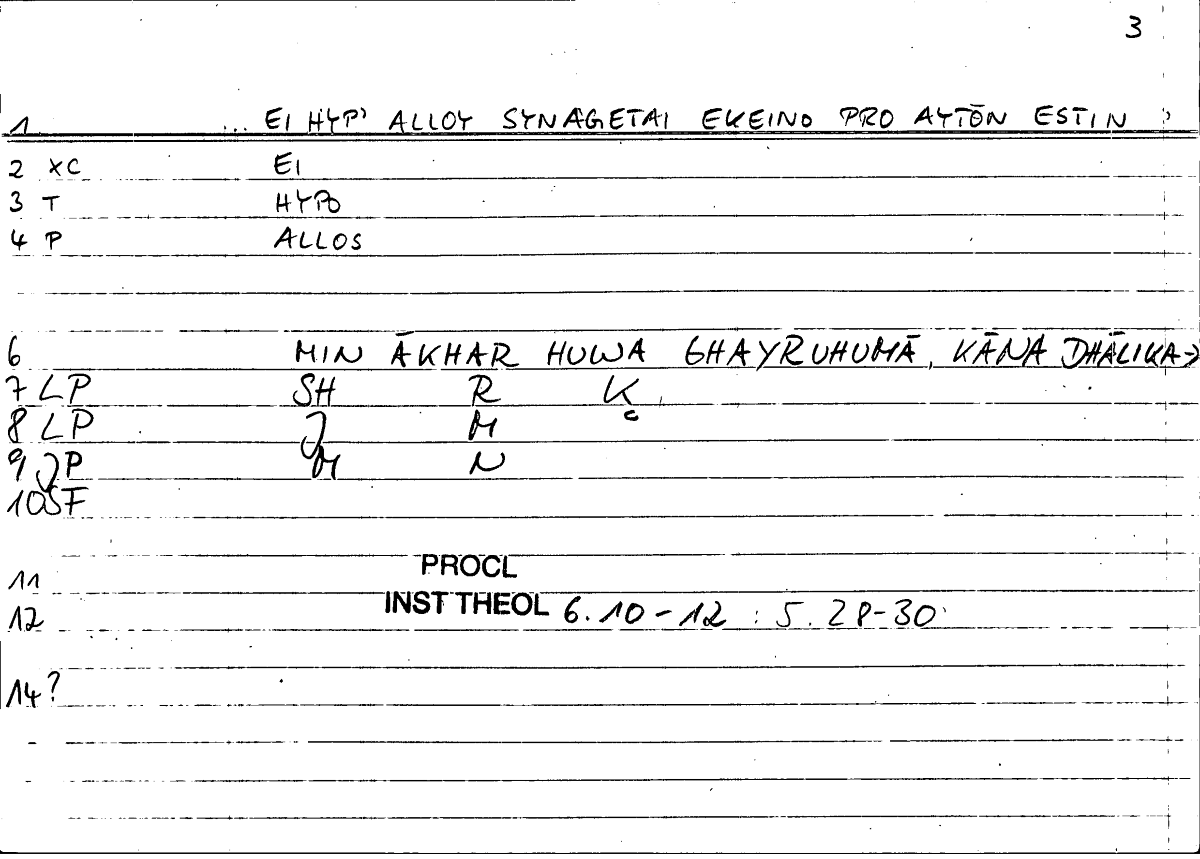 3
1 ... EI HYP' ALLOY SYNAGETAI EKEINO PRO AYTŌN ESTIN >
2 XC EI
3 T HYPO
4 P ALLOS
6 MIN ĀKHAR HUWA GHAYRUHUMĀ, KĀNA DHĀLIKA->
7 LP SH R K
8 LP J M c
9 JP M N
10 SF
11 PROCL
12 INST THEOL 6.10-12 : 5.28-30
14?